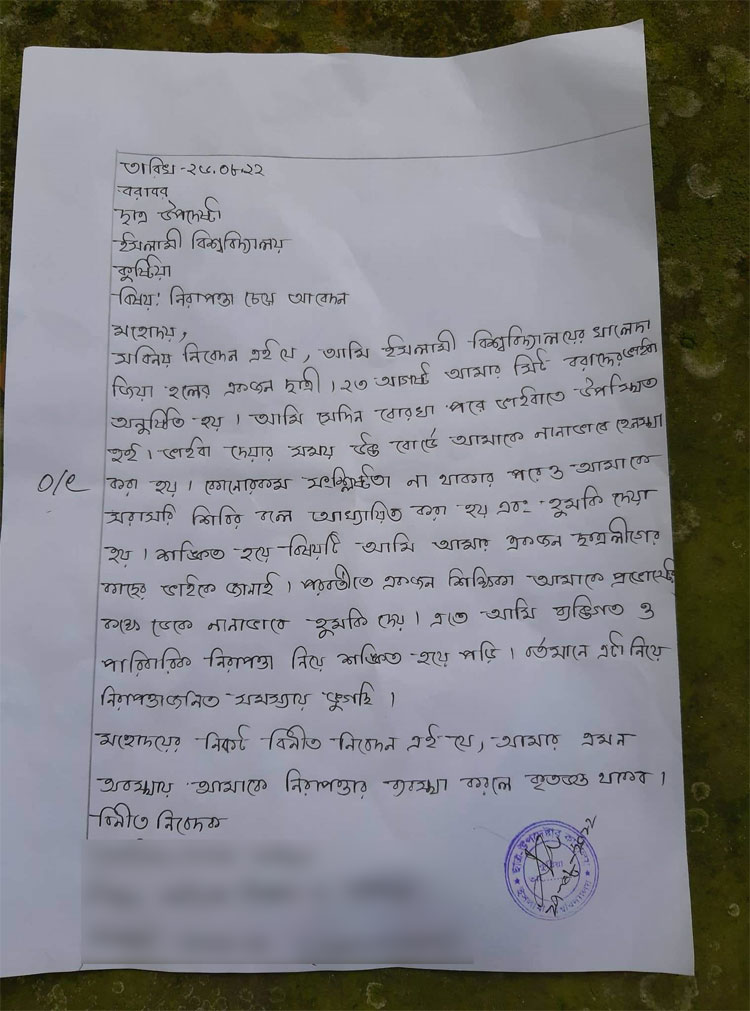 তারিখ-২৮.০৮.২২
বরাবর
ছাত্র উপদেষ্টা
ইসলামী বিশ্ববিদ্যালয়
কুষ্টিয়া
বিষয়: নিরাপত্তা চেয়ে আবেদন
মহোদয়,
সবিনয় নিবেদন এই যে, আমি ইসলামী বিশ্ববিদ্যালয়ের খালেদা
জিয়া হলের একজন ছাত্রী। ২৩ আগস্ট আমার সিট বরাদ্দের ভাইবা
অনুষ্ঠিত হয়। আমি সেদিন বোরখা পরে ভাইবাতে উপস্থিত
হই। ভাইবা দেয়ার সময় উক্ত বোর্ডে আমাকে নানাভাবে হেনস্থা
o/c করা হয়। কোনোরকম সংশ্লিষ্টতা না থাকার পরেও আমাকে
সরাসরি শিবির বলে আখ্যায়িত করা হয় এবং হুমকি দেয়া
হয়। শঙ্কিত হয়ে বিষয়টি আমি আমার একজন ছাত্রলীগের
কাছের ভাইকে জানাই। পরবর্তীতে একজন শিক্ষিকা আমাকে প্রভোস্টের
কক্ষে ডেকে নানাভাবে হুমকি দেয়। এতে আমি ব্যক্তিগত ও
পারিবারিক নিরাপত্তা নিয়ে শঙ্কিত হয়ে পড়ি। বর্তমানে এটা নিয়ে
নিরাপত্তাজনিত সমস্যায় ভুগছি।
মহোদয়ের নিকট বিনীত নিবেদন এই যে, আমার এমন
অবস্থায় আমাকে নিরাপত্তার ব্যবস্থা করলে কৃতজ্ঞ থাকব।
বিনীত নিবেদক